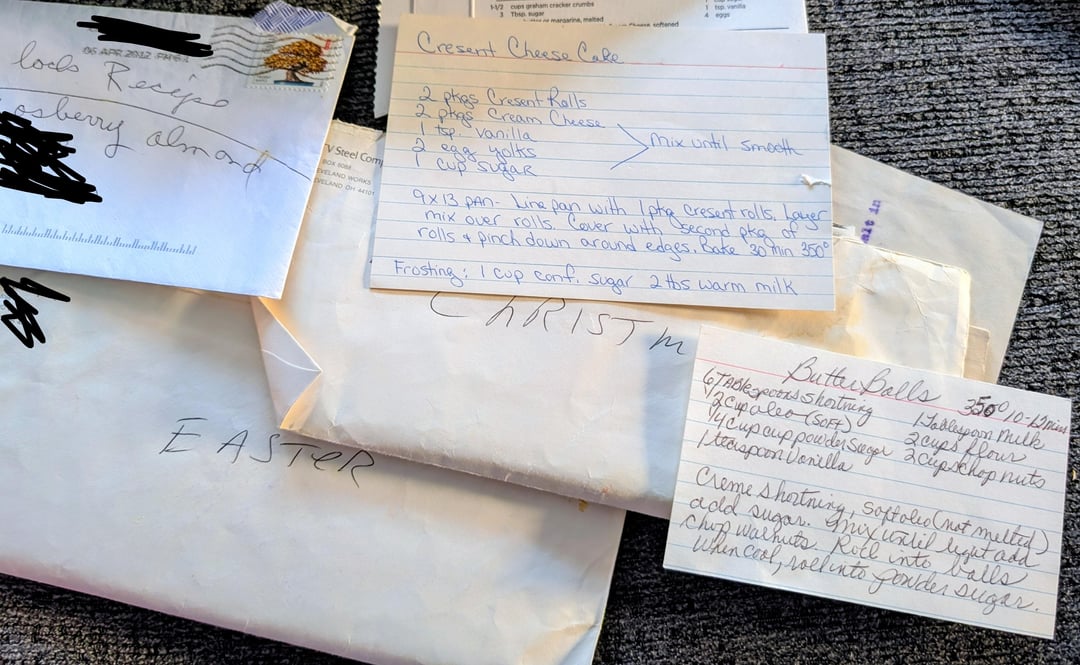 1-1/2 cups graham cracker crumbs
3 Tbsp. sugar
or margarine, melted
Cheese, softened
4 eggs
06 APR 2012 PM
locks Recipe
osberry almond
V Steel Comp
BOX 6088
EVELAND WORKS
EVELAND OH 44101
Cresent Cheese Cake
2 pkgs Cresent Rolls
2 pkgs Cream Cheese
1 tsp. Vanilla
2 egg yolks
1 cup sugar
mix until smooth
9x13 pan - Line pan with 1 pkg cresent rolls. Layer
mix over rolls. Cover with second pkg of
rolls & pinch down around edges. Bake 30 min 350°
Frosting: 1 cup conf. sugar 2 tbs warm milk
CHRISTM
EASTER
Butter Balls
350° 10-12 mins
6 TABlespoons shortning
1/2 Cup oleo (SOFT)
1/4 Cup cup powder Suegar
1 teaspoon Vanilla
1 Tablespoon Milk
2 cups flour
2 Cups chop nuts
Creme shortning, soft oleo (not melted)
add sugar. Mix until light add
chop walnuts. Roll into balls
When cool, roll into powder sugar.